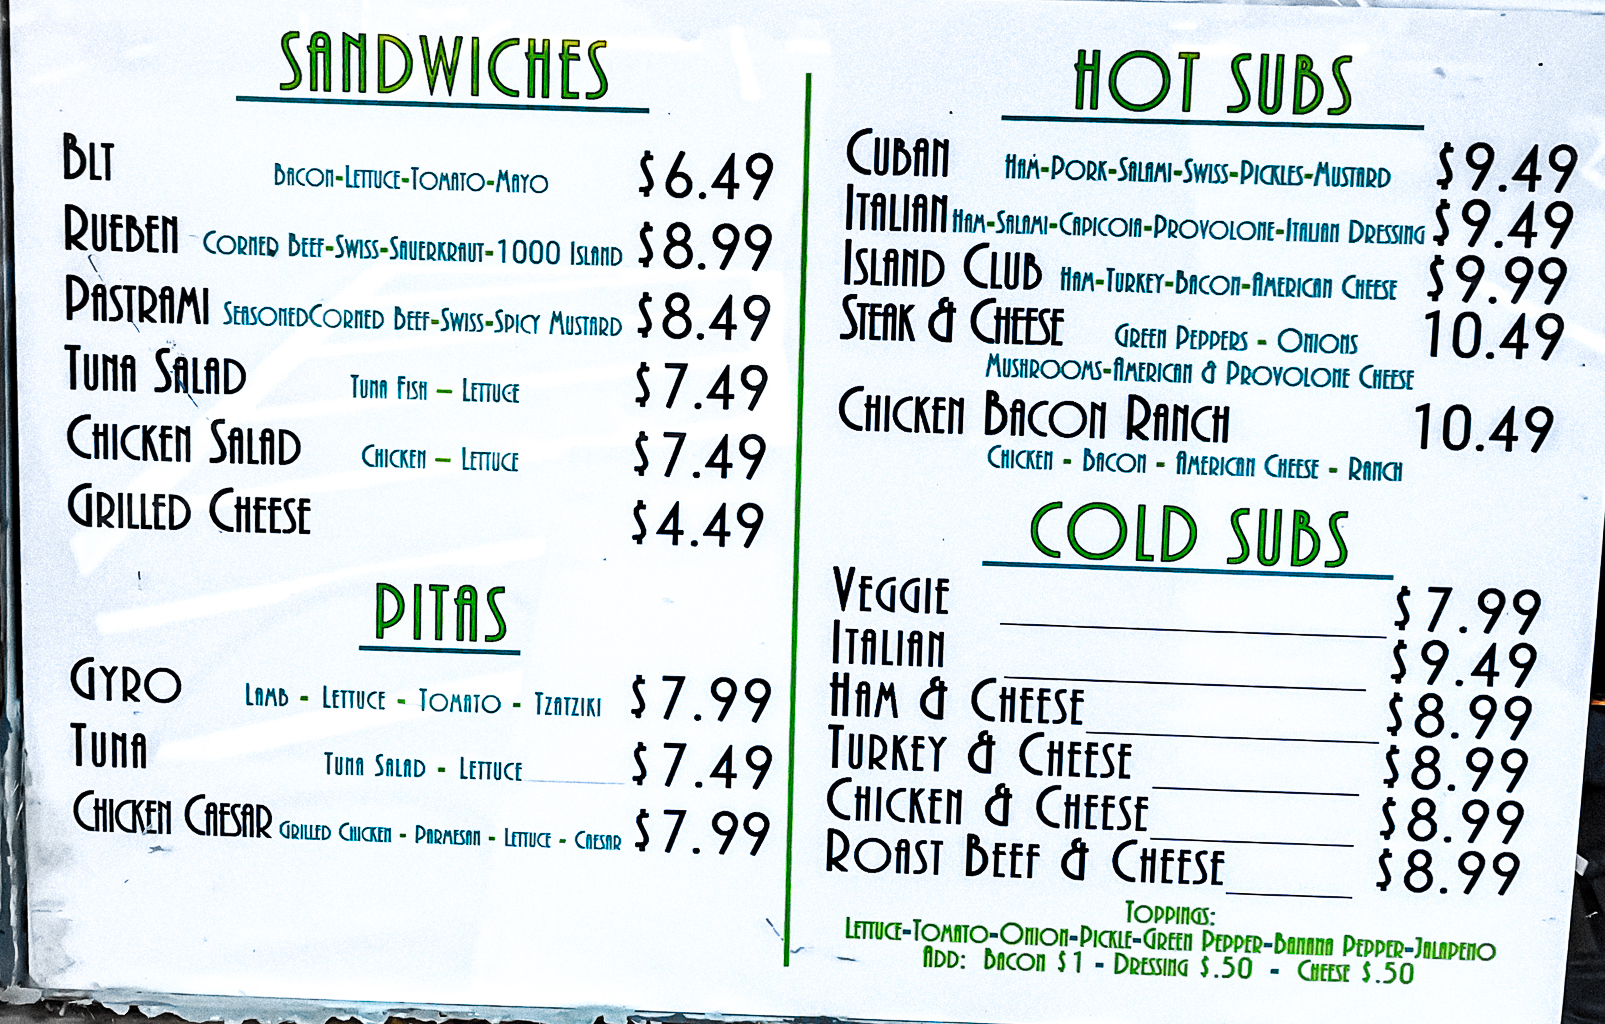 SANDWICHES
BLT Bacon-Lettuce-Tomato-Mayo $6.49
RUEBEN Corned Beef-Swiss-Sauerkraut-1000 Island $8.99
PASTRAMI SeasonedCorned Beef-Swiss-Spicy Mustard $8.49
TUNA SALAD Tuna Fish – Lettuce $7.49
CHICKEN SALAD Chicken – Lettuce $7.49
GRILLED CHEESE $4.49
PITAS
GYRO Lamb - Lettuce - Tomato - Tzatziki $7.99
TUNA Tuna Salad - Lettuce $7.49
CHICKEN CAESAR Grilled Chicken - Parmesan - Lettuce - Caesar $7.99
HOT SUBS
CUBAN Ham-Pork-Salami-Swiss-Pickles-Mustard $9.49
ITALIAN Ham-Salami-Capicoia-Provolone-Italian Dressing $9.49
ISLAND CLUB Ham-Turkey-Bacon-American Cheese $9.99
STEAK & CHEESE Green Peppers - Onions 10.49
Mushrooms-American & Provolone Cheese
CHICKEN BACON RANCH 10.49
Chicken - Bacon - American Cheese - Ranch
COLD SUBS
VEGGIE $7.99
ITALIAN $9.49
HAM & CHEESE $8.99
TURKEY & CHEESE $8.99
CHICKEN & CHEESE $8.99
ROAST BEEF & CHEESE $8.99
Toppings:
Lettuce-Tomato-Onion-Pickle-Green Pepper-Banana Pepper-Jalapeno
Add: Bacon $1 - Dressing $.50 - Cheese $.50